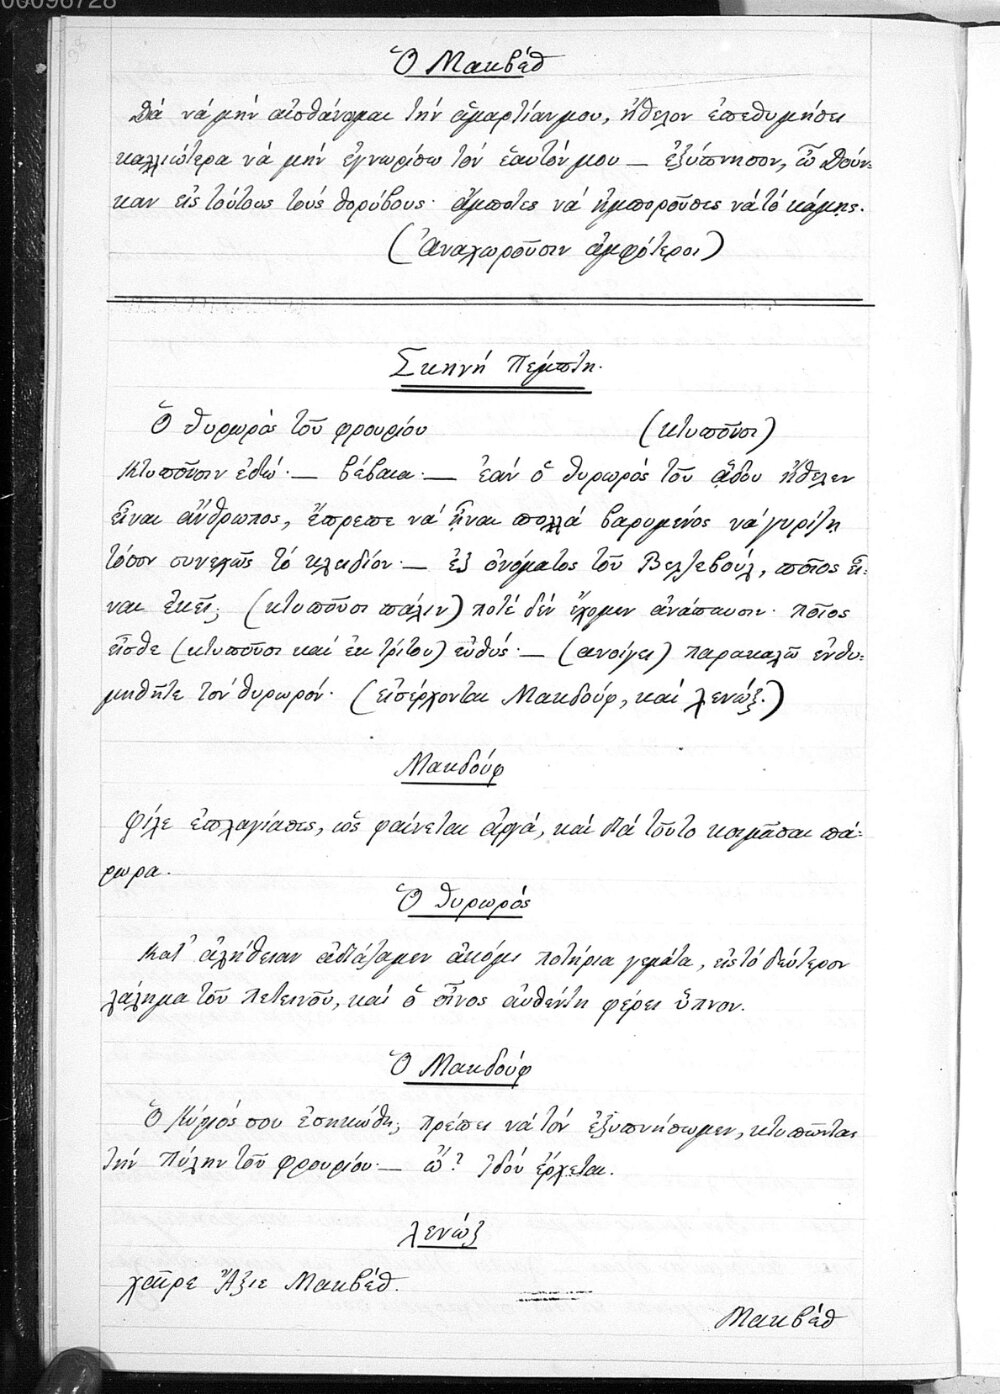 00096728
Ὁ Μακβέθ
Διά νά μήν αἰσθάνομαι τήν ἁμαρτίαν μου, ἤθελον ἐπιθυμήσει
καλλιώτερα νά μήν ἐγνωρίσω τόν ἑαυτόν μου — ἐξύπνησον, ὦ Δούν-
καν εἰς τούτους τούς θορύβους· ἄμποτες νά ἠμποροῦσες νά τό κάμῃς.
(Ἀναχωροῦσιν ἀμφότεροι)
Σκηνή Πέμπτη.
Ὁ θυρωρός τοῦ φρουρίου (κτυποῦσι)
Κτυποῦσιν ἐδώ· — βέβαια· — ἐάν ὁ θυρωρός τοῦ ᾅδου ἤθελεν
εἶναι ἄνθρωπος, ἔπρεπε νά ἦναι πολλά βαρυμένος νά γυρίζῃ
τόσον συνεχῶς τό κλειδίον· — ἐξ ὀνόματος τοῦ Βελζεβούλ, ποῖος εἶ-
ναι ἐκεῖ; (κτυποῦσι πάλιν) ποτέ δέν ἔχομεν ἀνάπαυσιν· ποῖος
εἶσθε (κτυποῦσι καί ἐκ τρίτου) εὐθύς· — (ἀνοίγει) παρακαλῶ ἐνθυ-
μηθῆτε τόν θυρωρόν· (εἰσέρχονται Μακδούφ, καί Λενώξ.)
Μακδούφ
Φίλε ἐπλαγίασες, ὡς φαίνεται ἀργά, καί διά τοῦτο κοιμᾶσαι πά-
ρωρα.
Ὁ θυρωρός
Κατ' ἀλήθειαν ἀδειάζαμεν ἀκόμι ποτήρια γεμάτα, εἰς τό δεύτερον
λάλημα τοῦ πετεινοῦ, καί ὁ οἶνος αὐθέντη φέρει ὕπνον.
Ὁ Μακδούφ
Ὁ Κύριός σου ἐσηκώθη; πρέπει νά τόν ἐξυπνήσωμεν, κτυπῶντας
τήν πύλην τοῦ φρουρίου — ὦ! ἰδού ἔρχεται.
Λενώξ
χαῖρε Ἄξιε Μακβέθ.
Μακβέθ